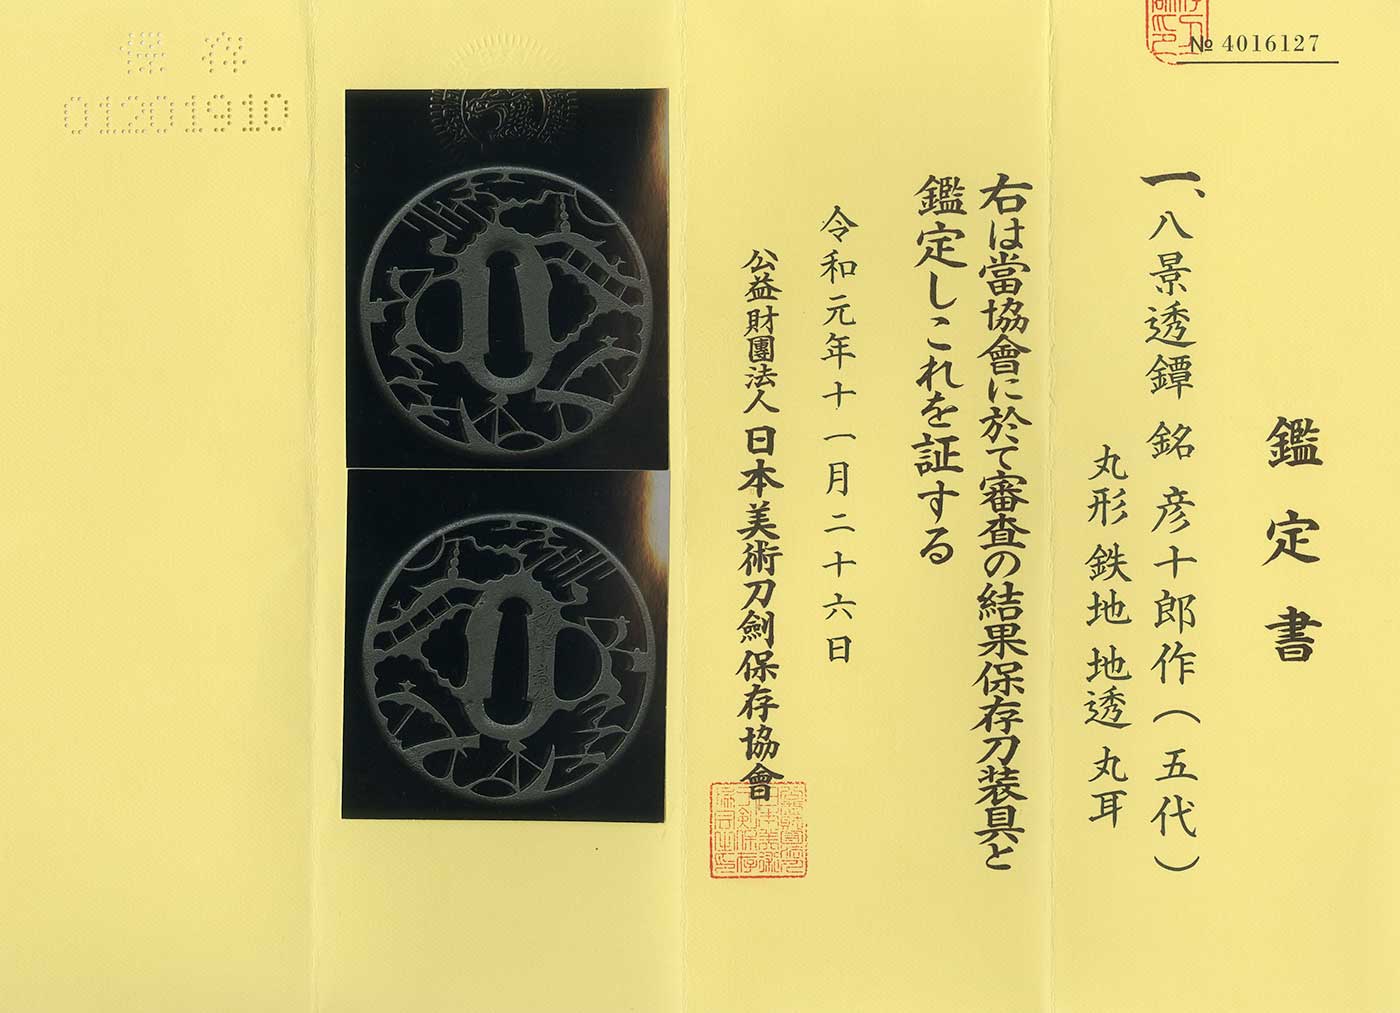 № 4016127
鑑定書
一、八景透鐔 銘 彦十郎作（五代）
丸形 鉄地 地透 丸耳
右は當協會に於て審査の結果保存刀装具と
鑑定しこれを証する
令和元年十一月二十六日
公益財團法人日本美術刀劍保存協會
保存
01201910